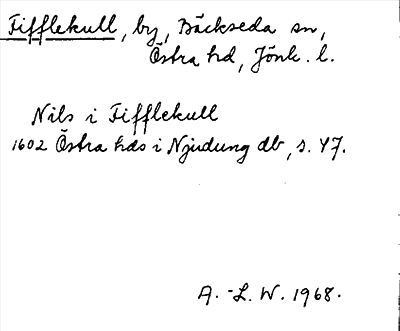 Fifflekull, by, Bäckseda sn,
Östra hd, Jönk. l.
Nils i Fifflekull
1602 Östra hds i Njudung db, s. 47.
A.-L. W. 1968.